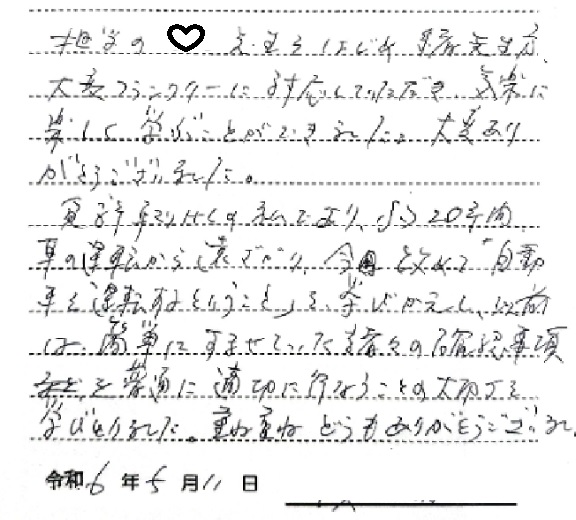 担当の ♡ 先生をはじめ 諸先生方、
大変フランクリーに対応していただき、気楽に
楽しく学ぶことができました。大変あり
がとうございました。
私であり、20年間、
車の運転から遠ざかり、今回改めて「自動
車を運転するということ」を、学びかえし、以前
は、簡単にすませていた諸々の確認事項
を普通に適切に行なうことの大切さを
学びとりました。重ね重ねどうもありがとうございまし
令和6年5月11日